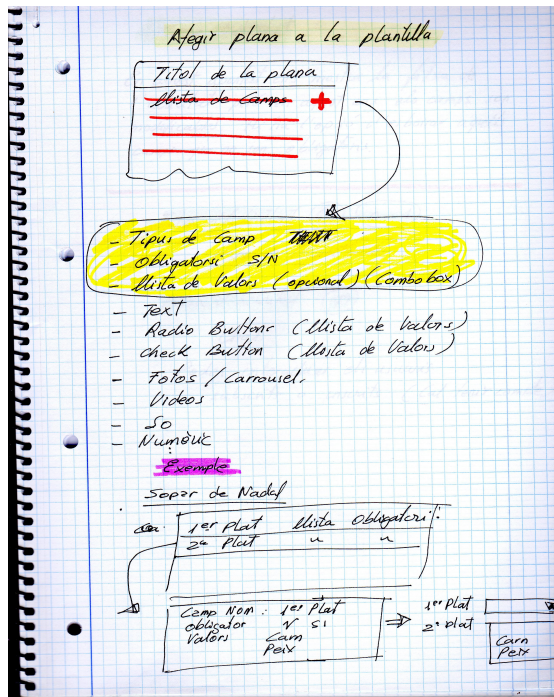 Afegir plana a la plantilla
Titol de la plana
Llista de Camps +
- Tipus de Camp
- Obligatorsi S/N
- Llista de Valors (opcional) (Combobox)
- Text
- Radio Buttons (Llista de Valors)
- Check Button (Llosta de Valors)
- Fotos / Carrousel.
- Videos
- So
- Numèric
Exemple
Sopar de Nadal
1er Plat Llista Obligatori:
2on Plat " "
Camp Nom: 1er Plat
Obligator SI
Valors Carn
Peix
⇒ 1er Plat
2on plat
Carn
Peix